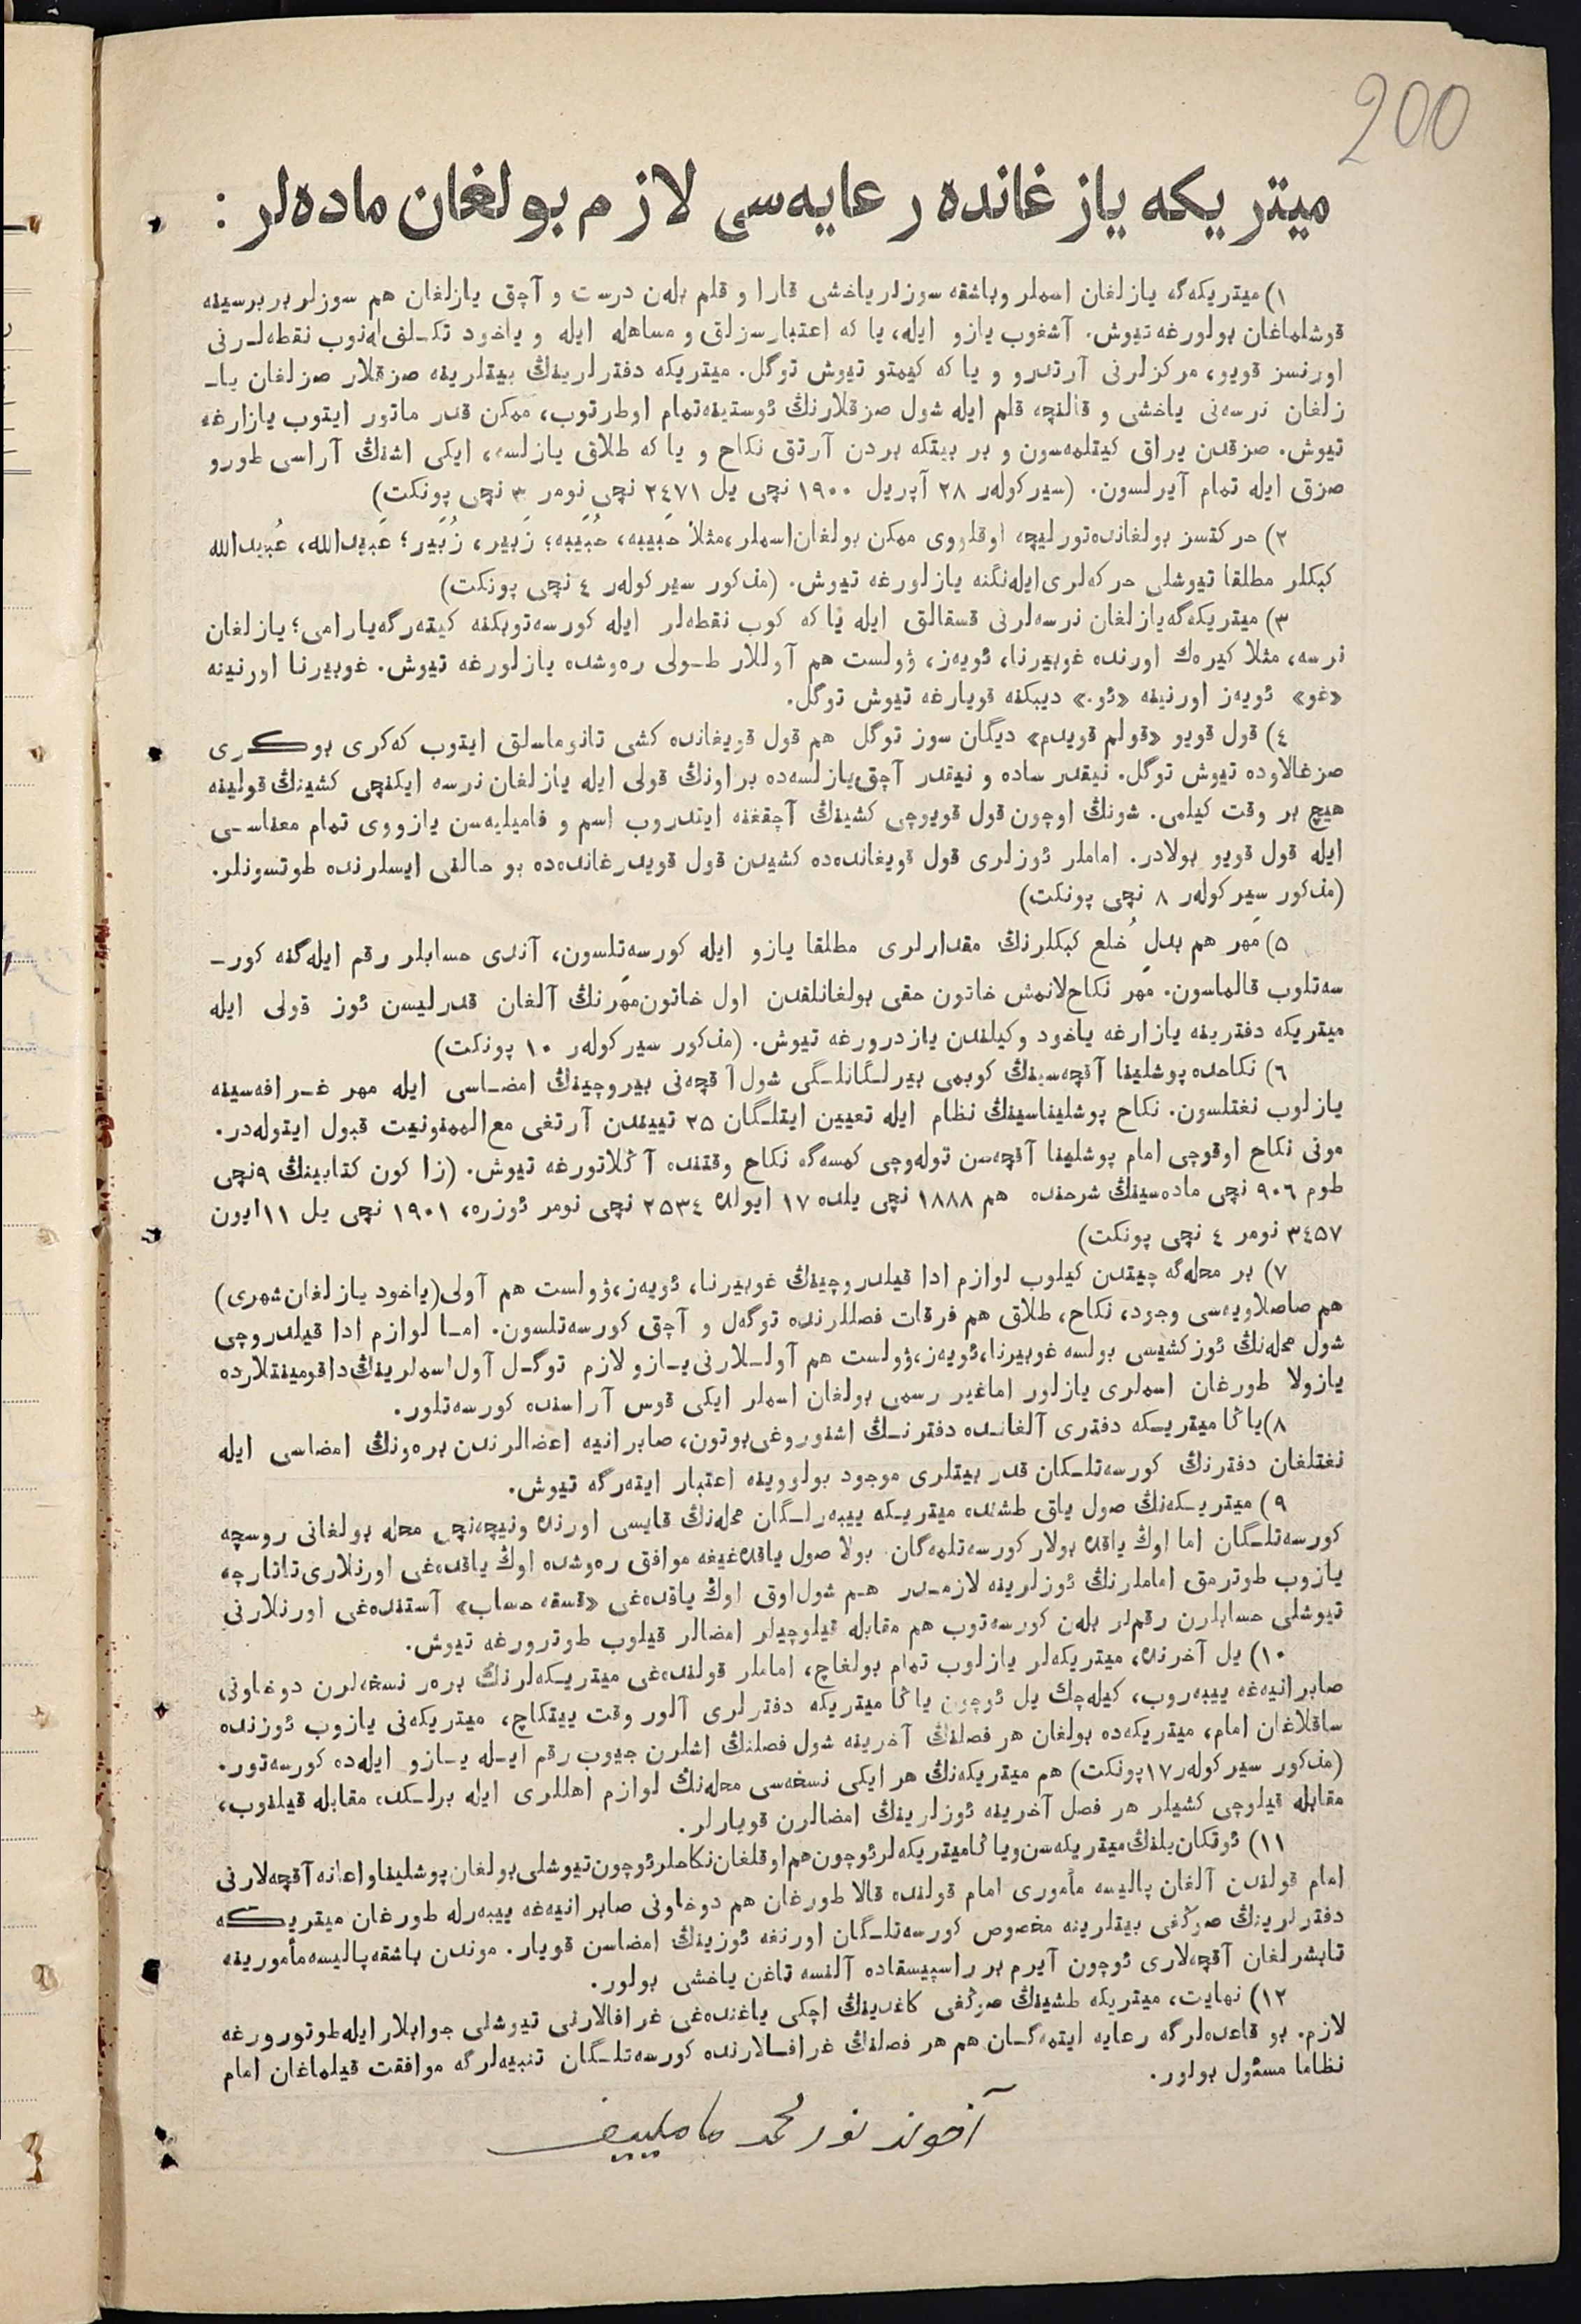 200
ميتريكه يازغانده رعايه‌سى لازم بولغان ماده‌لر :
١) ميتريكه‌گه يازلغان اسملر وباشقه سوزلر ياخشى قارا و قلم بله‌ن درست و آچق يازلغان هم سوزلر بربرسينه
قوشلماغان بولورغه تيوش. آشغوب يازو ايله، يا كه اعتبارسزلق و مساهله ايله و ياخود تكـلف‌له‌نوب نقطه‌لـرنى
اورنسز قويو، مركزلرنى آرتدرو و يا كه كيمتو تيوش توگل. ميتريكه دفترلرينڭ بيتلرينه صزقلار صزلغان ياـ
زلغان نرسه‌نى ياخشى و قالنچه قلم ايله شول صزقلارنڭ ئوستينه‌تمام اوطرتوب، ممكن قدر ماتور ايتوب يازارغه
تيوش. صزقدن يراق كيتلمه‌سون و بر بيتكه بردن آرتق نكاح و يا كه طلاق يازلسه، ايكى اشنڭ آراسى طورو
صزق ايله تمام آيرلسون. (سيركوله‌ر ٢٨ آپريل ١٩٠٠ نچى يل ٢٤٧١ نچى نومر ٣ نچى پونكت)
٢) حركتسز بولغانده‌تورليچه اوقلووى ممكن بولغان‌اسملر،مثلا حَبيبه، حُبَيبه؛ زَبير، زُبَير؛ عَبيدالله، عُبيدالله
كبكلر مطلقا تيوشلى حركه‌لرى‌ايله‌نگنه يازلورغه تيوش. (مذكور سيركوله‌ر ٤ نچى پونكت)
٣) ميتريكه‌گه‌يازلغان نرسه‌لرنى قسقالق ايله يا كه كوب نقطه‌لر ايله كورسه‌توبكنه كيته‌رگه‌يارامى؛ يازلغان
نرسه، مثلا كيره‌ك اورنده غوبيرنا، ئويه‌ز، ۋولست هم آوللار طـولى ره‌وشده يازلورغه تيوش. غوبيرنا اورنينه
«غو» ئويه‌ز اورنينه «ئو.» ديبكنه قويارغه تيوش توگل.
٤) قول قويو «قولم قويدم» ديگان سوز توگل هم قول قويغانده كشى تانوماسلق ايتوب كه‌كرى بوكرى
صزغالاوده تيوش توگل. نيقدر ساده و نيقدر آچق‌يازلسه‌ده براونڭ قولى ايله يازلغان نرسه ايكنچى كشينڭ قولينه
هيچ بر وقت كيلمى. شونڭ اوچون قول قويوچى كشينڭ آچقغنه ايتدروب اسم و فاميليه‌سن يازووى تمام معناسـى
ايله قول قويو بولادر. اماملر ئوزلرى قول قويغانده‌ده كشيدن قول قويدرغانده‌ده بو حالنى ايسلرنده طوتسونلر.
(مذكور سيركوله‌ر ٨ نچى پونكت)
٥) مَهر هم بدل خُلع كبكلرنڭ مقدارلرى مطلقا يازو ايله كورسه‌تلسون، آندى حسابلر رقم ايله‌گنه كورـ
سه‌تلوب قالماسون. مَهر نكاح‌لانمش خاتون حقى بولغانلقدن اول خاتون‌مَهرنڭ آلغان قدرليسن ئوز قولى ايله
ميتريكه دفترينه يازارغه ياخود وكيلندن يازدرورغه تيوش. (مذكور سيركوله‌ر ١٠ پونكت)
٦) نكاحده پوشلينا آقچه‌سينڭ كوبمى بيرلـگانلـگى شول آقچه‌نى بيروچينڭ امضـاسى ايله مهر غـرافه‌سينه
يازلوب نغتلسون. نكاح پوشليناسينڭ نظام ايله تعيين ايتلـگان ٢٥ تييندن آرتغى مع‌الممنونيت قبول ايتوله‌در.
مونى نكاح اوقوچى امام پوشلينا آقچه‌سن توله‌وچى كمسه‌گه نكاح وقتنده آڭلاتورغه تيوش. (زاكون كتابينڭ ٩نچى
طوم ٩٠٦ نچى ماده‌سينڭ شرحنده هم ١٨٨٨ نچى يلده ١٧ ايولده ٢٥٣٤ نچى نومر ئوزره، ١٩٠١ نچى يل ١١ايون
٣٤٥٧ نومر ٤ نچى پونكت)
٧) بر محله‌گه چيتدن كيلوب لوازم ادا قيلدروچينڭ غوبيرنا، ئويه‌ز،ۋولست هم آولى(ياخود يازلغان‌شهرى)
هم صاصلاويه‌سى وجود، نكاح، طلاق هم فرقات فصللرنده توگه‌ل و آچق كورسه‌تلسون. امـا لوازم ادا قيلدروچى
شول محله‌نڭ ئوزكشيسى بولسه غوبيرنا،ئويه‌ز،ۋولست هم آولـلارنى يـازو لازم توگـل آول‌اسملرينڭ‌داقومينتلارده
يازولا طورغان اسملرى يازلور اماغير رسمى بولغان اسملر ايكى قوس آراسنده كورسه‌تلور.
٨)ياڭا ميتريـكه دفترى آلغانـده دفترنـڭ اشنوروغى‌بوتون، صابرانيه اعضالرندن بره‌ونڭ امضاسى ايله
نغتلغان دفترنڭ كورسه‌تلـكان قدر بيتلرى موجود بولووينه اعتبار ايته‌رگه تيوش.
٩) ميتريـكه‌نڭ صول ياق طشنده ميتريـكه يبيه‌رلـگان محله‌نڭ قايسى اورنده ونيچه‌نچى محله بولغانى روسچه
كورسه‌تلـگان اما اوڭ ياقده بولار كورسه‌تلمه‌گان. بولا صول ياقده‌غيغه موافق ره‌وشده اوڭ ياقده‌غى اورنلارى‌تاتارچه
يازوب طوترمق اماملرنڭ ئوزلرينه لازمـدر هـم شول‌اوق اوڭ ياقده‌غى «قسقه حساب» آستنده‌غى اورنلارنى
تيوشلى حسابلرن رقم‌لر بله‌ن كورسه‌توب هم مقابله قيلوچيلر امضالر قيلوب طوترورغه تيوش.
١٠) يل آخرنده، ميتريكه‌لر يازلوب تمام بولغاچ، اماملر قولنده‌غى ميتريـكه‌لرنڭ بره‌ر نسخه‌لرن دوخاونى
صابرانيه‌غه يبيه‌روب، كيله‌چك يل ئوچون ياڭا ميتريكه دفترلرى آلور وقت ييتكاچ، ميتريكه‌نى يازوب ئوزنده
ساقلاغان امام، ميتريكه‌ده بولغان هر فصلنڭ آخرينه شول فصلنڭ اشلرن جيوب رقم ايـله يـازو ايله‌ده كورسه‌تور.
(مذكور سيركوله‌ر ١٧پونكت) هم ميتريكه‌نڭ هر ايكى نسخه‌سى محله‌نڭ لوازم اهللرى ايله برلـكده مقابله قيلنوب،
مقابله قيلوچى كشيلر هر فصل آخرينه ئوزلرينڭ امضالرن قويارلر.
١١) ئوتكان‌يلنڭ‌ميتريكه‌سن‌وياڭاميتريكه‌لرئوچون‌هم‌اوقلغان‌نكاحلرئوچون‌تيوشلى‌بولغان‌پوشليناواعانه‌آقچه‌لارنى
امام قولندن آلغان پاليسه مأمورى امام قولنده قالا طورغان هم دوخاونى صابرانيه‌غه يبيه‌رله طورغان ميتريكه
دفترلرينڭ صوڭغى بيتلرينه مخصوص كورسه‌تلـگان اورنغه ئوزينڭ امضاسن قويار. موندن باشقه‌پاليسه‌مأمورينه
تابشرلغان آقچه‌لارى ئوچون آيرم بر راسپيسقاده آلنسه تاغن ياخشى بولور.
١٢) نهايت، ميتريكه طشينڭ صوڭغى كاغدينڭ اچكى ياغنده‌غى غرافالارنى تيوشلى جوابلارايله‌طوتورورغه
لازم. بو قاعده‌لرگه رعايه ايتمه‌گـان هم هر فصلنڭ غرافـالارنده كورسه‌تلـگان تنبيه‌لرگه موافقت قيلماغان امام
نظاما مسئول بولور.
آخوند نورمحمد مامليیف